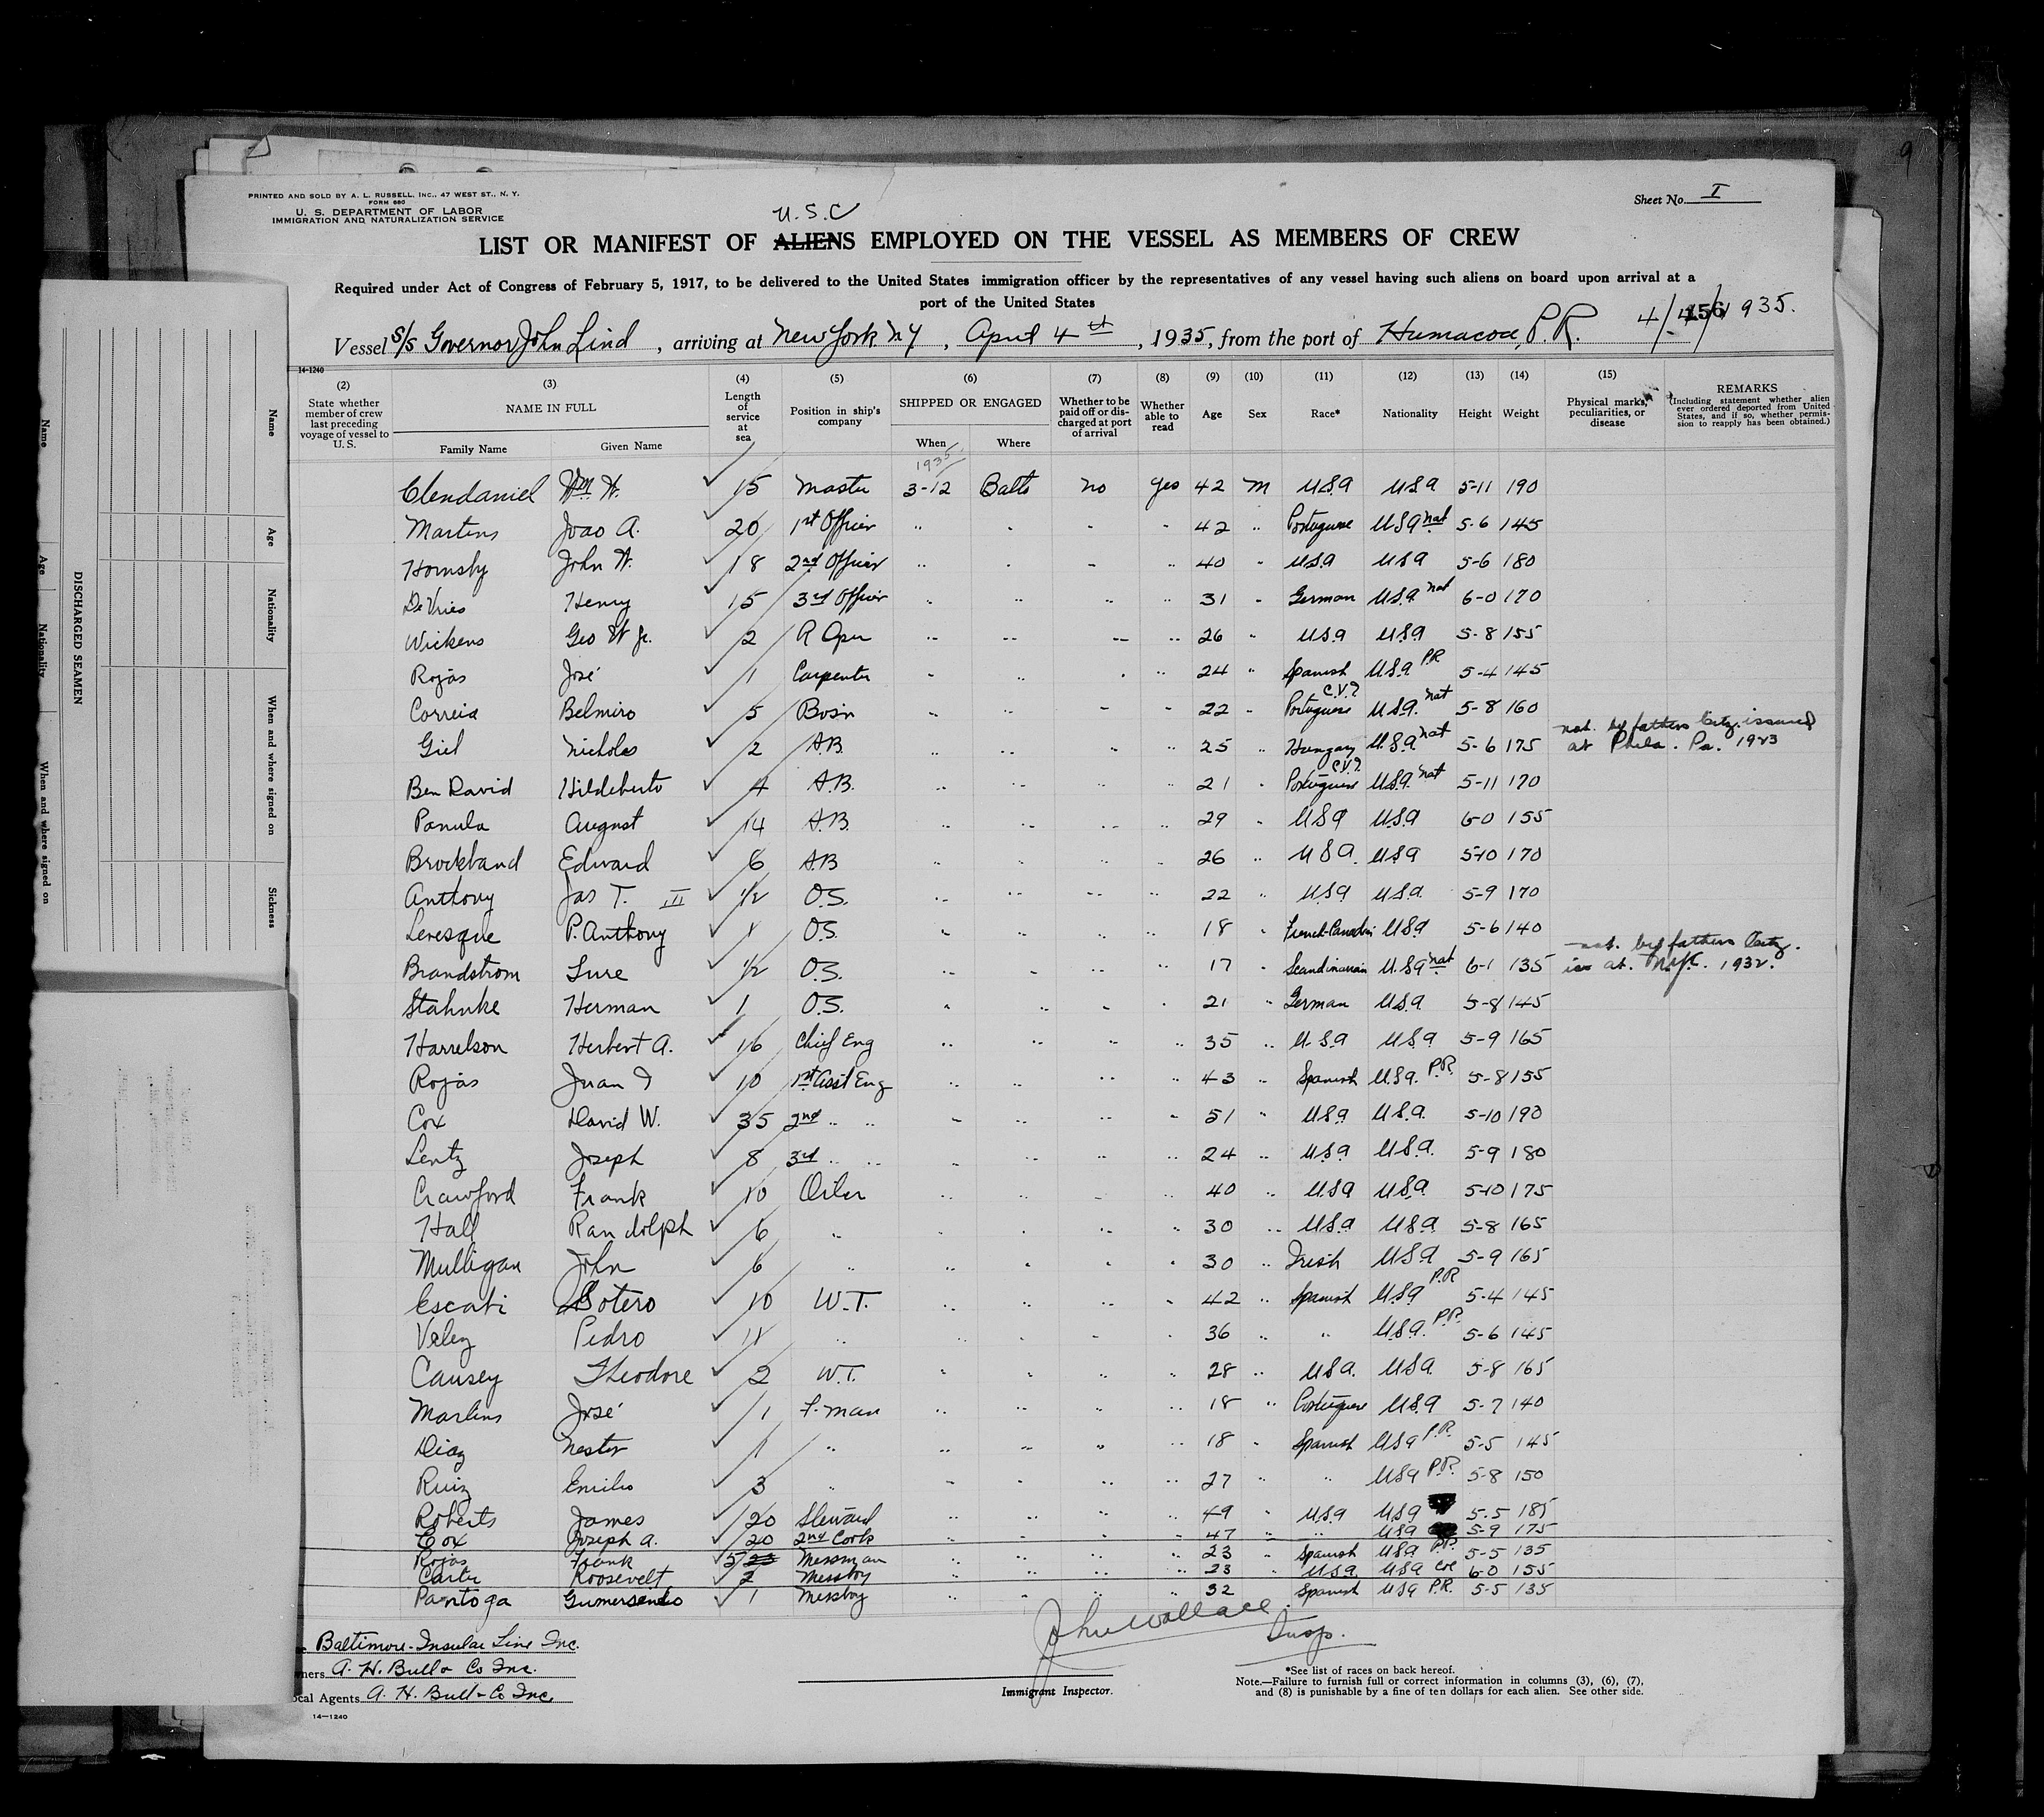 9
PRINTED AND SOLD BY A. L. RUSSELL, INC., 47 WEST ST., N. Y.
FORM 680
U. S. DEPARTMENT OF LABOR
IMMIGRATION AND NATURALIZATION SERVICE
Sheet No. I
U.S.C
LIST OR MANIFEST OF ALIENS EMPLOYED ON THE VESSEL AS MEMBERS OF CREW
Required under Act of Congress of February 5, 1917, to be delivered to the United States immigration officer by the representatives of any vessel having such aliens on board upon arrival at a
port of the United States
156
Vessel S/S Governor John Lind, arriving at New York NY, April 4th, 1935, from the port of Humacoa, P.R. 4/4/1935.
14-1240
(2) (3) (4) (5) (6) (7) (8) (9) (10) (11) (12) (13) (14) (15)
State whether member of crew last preceding voyage of vessel to U.S.
NAME IN FULL
Family Name Given Name
Length of service at sea
Position in ship's company
SHIPPED OR ENGAGED
When Where
Whether to be paid off or discharged at port of arrival
Whether able to read
Age Sex Race* Nationality Height Weight
Physical marks, peculiarities, or disease
REMARKS
(Including statement whether alien ever ordered deported from United States, and if so, whether permission to reapply has been obtained.)
1935
Clendaniel Wm W. ✓ 15 Master 3-12 Balto no yes 42 M USA USA 5-11 190
Martins Joao A. ✓ 20 1st Officer " " " " 42 " Portuguese USA nat 5-6 145
Hornsby John W. ✓ 18 2nd Officer " " " " 40 " USA USA 5-6 180
DeVries Henry ✓ 15 3rd Officer " " " " 31 " German USA nat 6-0 170
Wickens Geo W Jr. ✓ 2 R Oper " " " " 26 " USA USA 5-8 155
Rojas José ✓ 1 Carpenter " " " " 24 " Spanish USA P.R 5-4 145
Correia Belmiro ✓ 5 Bosn " " " " 22 " Portuguese C.V.? USA nat 5-8 160
Giel Nicholas ✓ 2 A.B. " " " " 25 " Hungary USA nat 5-6 175 nat. by fathers Citz. issued at Phila. Pa. 1923
Ben David Hildeberto ✓ 4 A.B. " " " " 21 " Portuguese C.V.? USA nat 5-11 170
Panula August ✓ 14 A.B. " " " " 29 " USA USA 6-0 155
Brockband Edward ✓ 6 A.B " " " " 26 " USA USA 5-10 170
Anthony Jas T. III ✓ 1/2 O.S. " " " " 22 " USA USA 5-9 170
Leresque P. Anthony ✓ 1 O.S. " " " " 18 " French-Canadian USA 5-6 140
Brandstrom Ture ✓ 1/2 O.S. " " " " 17 " Scandinavian USA nat 6-1 135 nat. by fathers Citz. iss at. N.Y.C. 1932.
Stahnke Herman ✓ 1 O.S. " " " " 21 " German USA 5-8 145
Harrelson Herbert A. ✓ 16 Chief Eng " " " " 35 " USA USA 5-9 165
Rojas Juan I ✓ 10 1st Asst Eng " " " " 43 " Spanish USA P.R. 5-8 155
Cox David W. ✓ 35 2nd " " " " " " 51 " USA USA 5-10 190
Lentz Joseph ✓ 8 3rd " " " " " " 24 " USA USA 5-9 180
Crawford Frank ✓ 10 Oiler " " " " 40 " USA USA 5-10 175
Hall Randolph ✓ 6 " " " " " 30 " USA USA 5-8 165
Mulligan John ✓ 6 " " " " " 30 " Irish USA 5-9 165
Escabi Sotero ✓ 10 W.T. " " " " 42 " Spanish USA P.R 5-4 145
Velez Pedro ✓ 11 " " " " " 36 " " USA P.R. 5-6 145
Causey Theodore ✓ 2 W.T. " " " " 28 " USA USA 5-8 165
Martins José ✓ 1 F-man " " " " 18 " Portuguese USA 5-7 140
Diaz Nestor ✓ 1 " " " " " 18 " Spanish USA P.R. 5-5 145
Ruiz Emilio ✓ 3 " " " " " 27 " " USA P.R. 5-8 150
Roberts James ✓ 20 Steward " " " " 49 " USA USA 5-5 185
Cox Joseph A. ✓ 20 2nd Cook " " " " 47 " " USA 5-9 175
Rojas Frank ✓ 5 23 Messman " " " " 23 " Spanish USA P.R. 5-5 135
Carter Roosevelt ✓ 2 Messboy " " " " 23 " USA USA Col 6-0 155
Pantoga Gumersendo ✓ 1 Messboy " " " " 32 " Spanish USA P.R. 5-5 135
John Wallace
Insp.
Immigrant Inspector.
Baltimore-Insular Line Inc.
ners A. H. Bull & Co Inc.
ocal Agents A. H. Bull & Co Inc.
14-1240
*See list of races on back hereof.
Note.—Failure to furnish full or correct information in columns (3), (6), (7),
and (8) is punishable by a fine of ten dollars for each alien. See other side.
DISCHARGED SEAMEN
Name
Age
Nationality
When and where signed on
Sickness
Name
Age
Nationality
When and where signed on